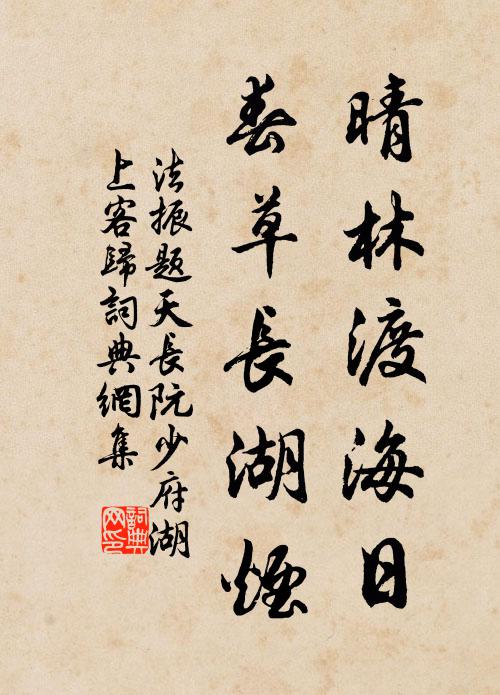 晴林渡海日
春草長湖煙
法振題天長阮少府湖
上客歸詞典網集
詞典網印